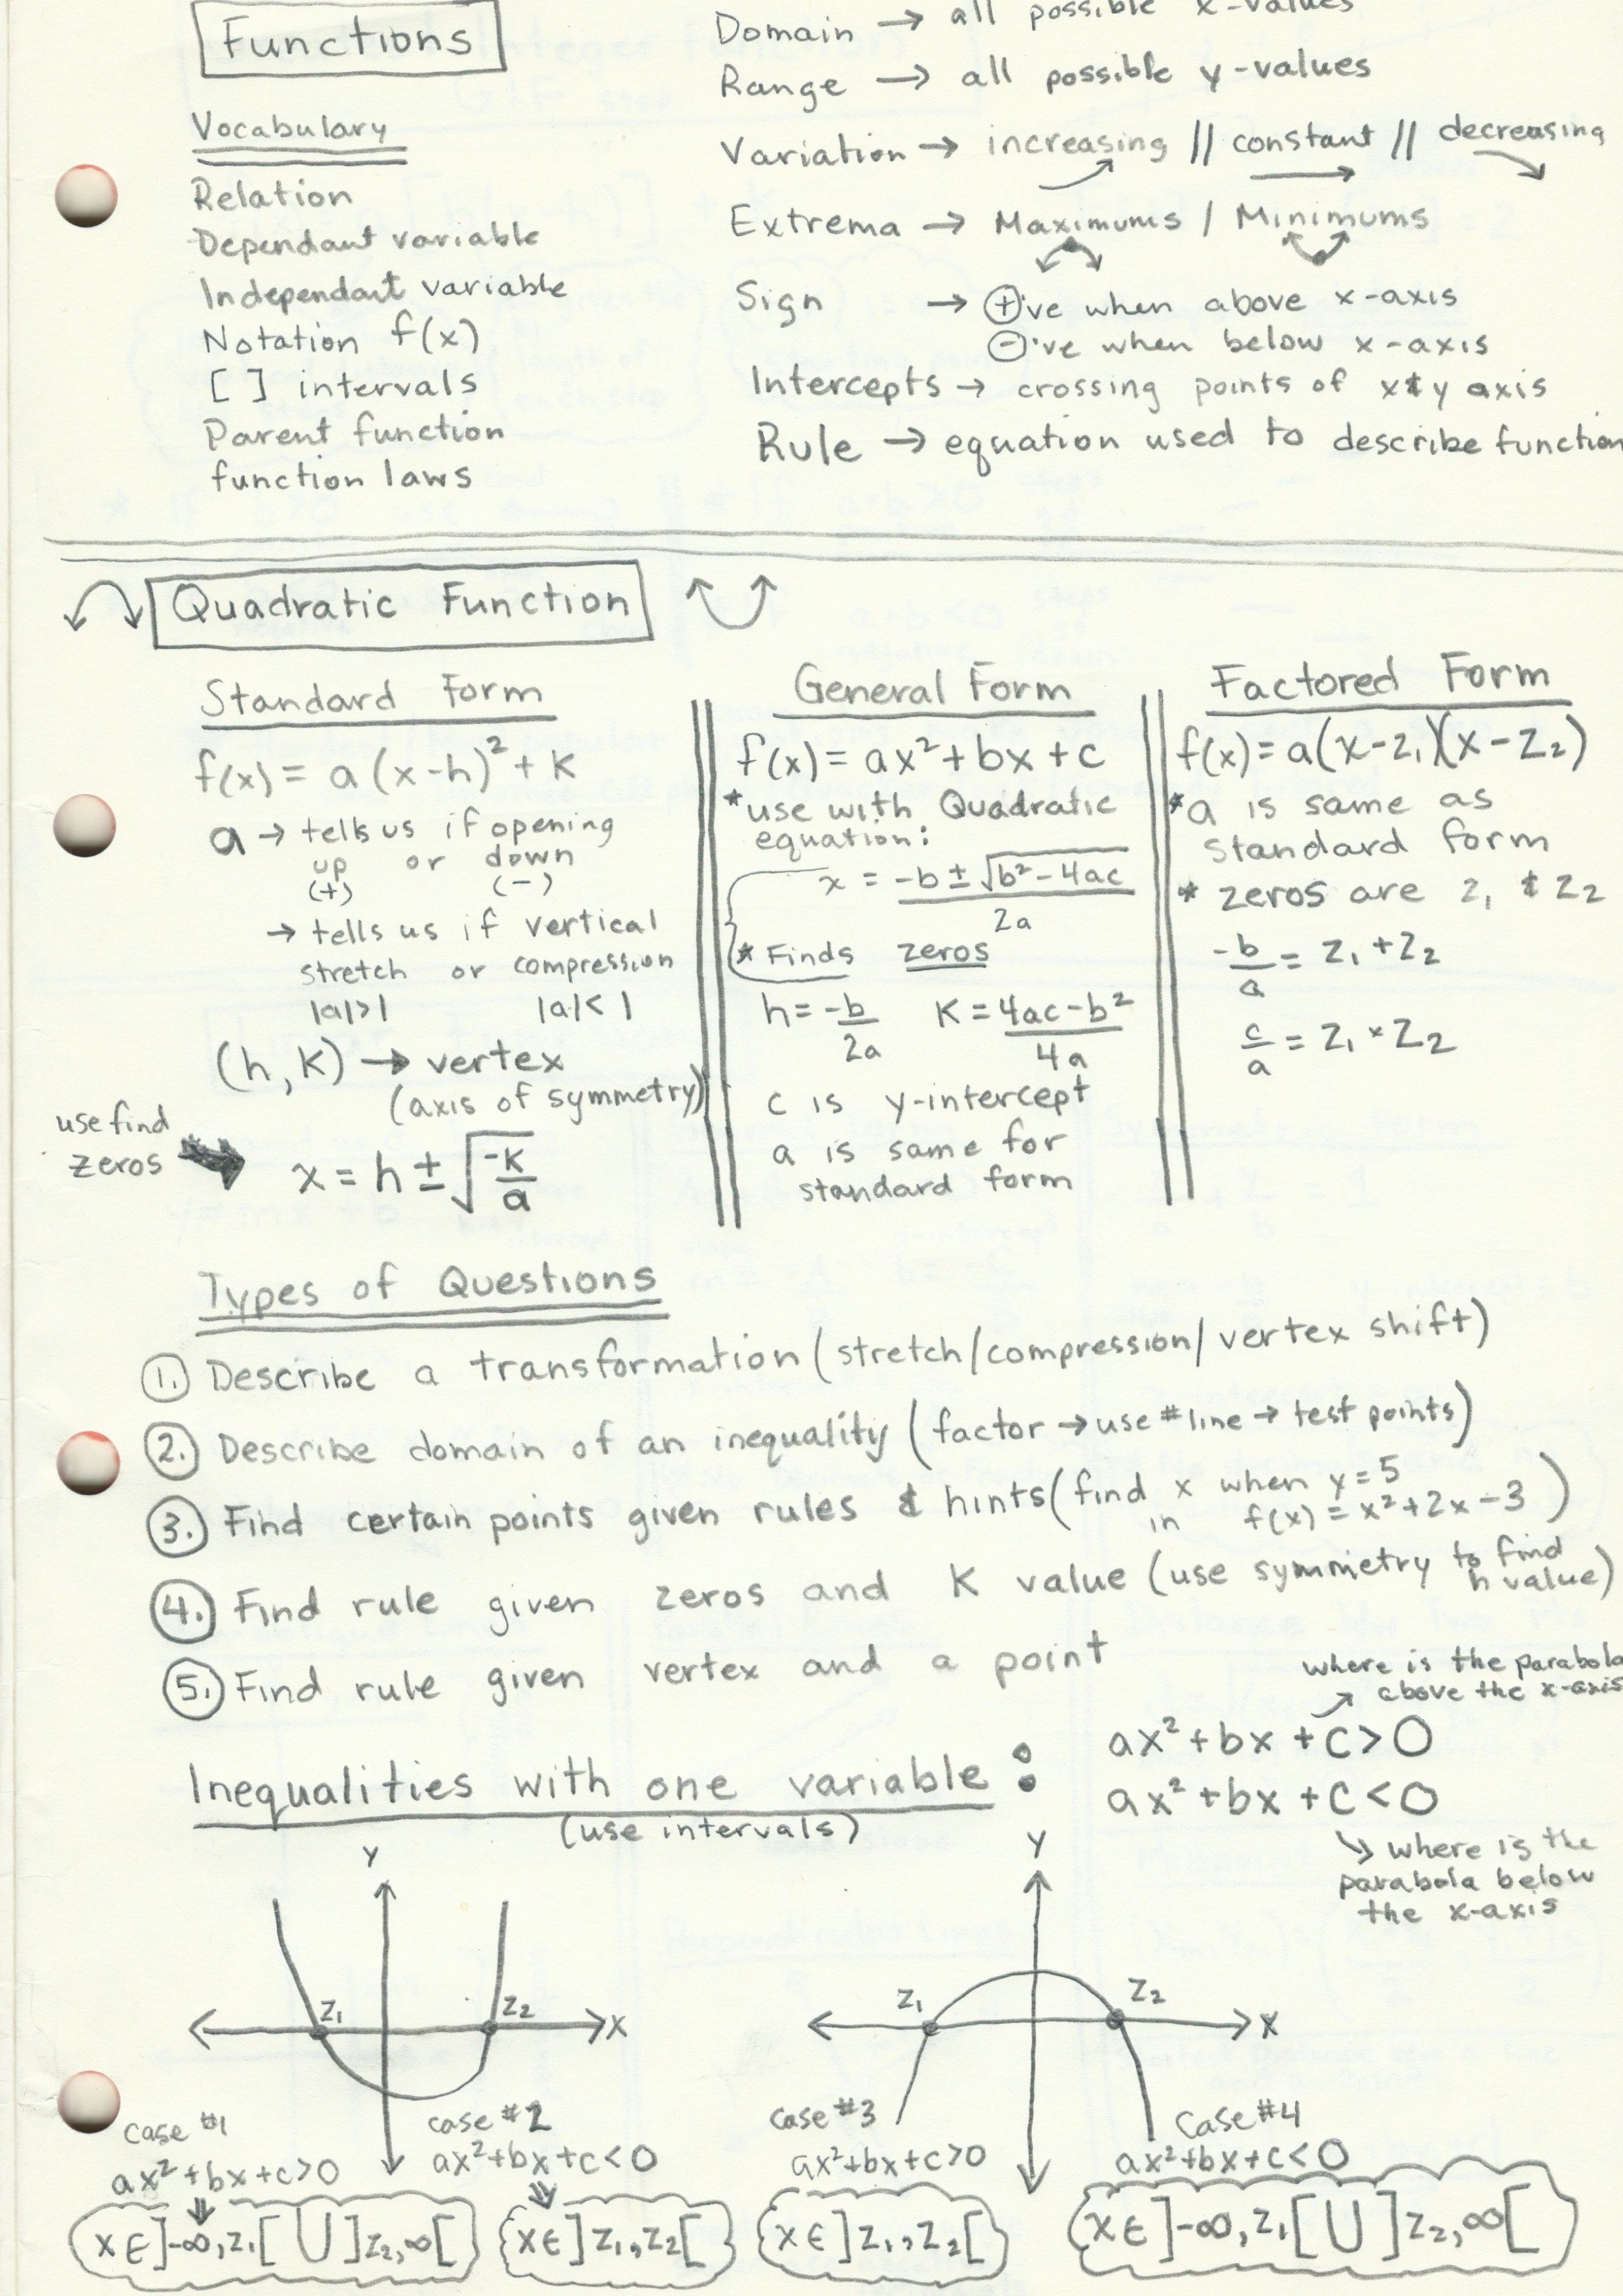 Functions
Vocabulary
Relation
Dependant variable
Independant variable
Notation f(x)
[ ] intervals
Parent function
function laws
Domain → all possible x-values
Range → all possible y-values
Variation → increasing // constant // decreasing
Extrema → Maximums / Minimums
Sign → +'ve when above x-axis
-'ve when below x-axis
Intercepts → crossing points of x & y axis
Rule → equation used to describe function
Quadratic Function
Standard Form
f(x) = a(x-h)² + k
a → tells us if opening
up or down
(+) (-)
→ tells us if vertical
stretch or compression
|a|>1 |a|<1
(h, k) → vertex
(axis of symmetry)
use find
zeros
x = h ± √(-k/a)
General Form
f(x) = ax² + bx + c
* use with Quadratic
equation:
x = -b ± √b² - 4ac
2a
* Finds zeros
h = -b/2a K = 4ac-b²/4a
c is y-intercept
a is same for
standard form
Factored Form
f(x) = a(x-z₁)(x-z₂)
* a is same as
standard form
* zeros are z₁ & z₂
-b/a = z₁ + z₂
c/a = z₁ × z₂
Types of Questions
1. Describe a transformation (stretch/compression/vertex shift)
2. Describe domain of an inequality (factor → use # line → test points)
3. Find certain points given rules & hints (find x when y = 5
in f(x) = x² + 2x - 3)
4. Find rule given zeros and K value (use symmetry to find
h value)
5. Find rule given vertex and a point
Inequalities with one variable :
(use intervals)
where is the parabola
above the x-axis
ax² + bx + c > 0
ax² + bx + c < 0
where is the
parabola below
the x-axis
Y
Z₁ Z₂ X
Y
Z₁ Z₂ X
case #1
ax² + bx + c > 0
x ∈ ]-∞, z₁[ U ]z₂, ∞[
case #2
ax² + bx + c < 0
x ∈ ]z₁, z₂[
case #3
ax² + bx + c > 0
x ∈ ]z₁, z₂[
case #4
ax² + bx + c < 0
x ∈ ]-∞, z₁[ U ]z₂, ∞[